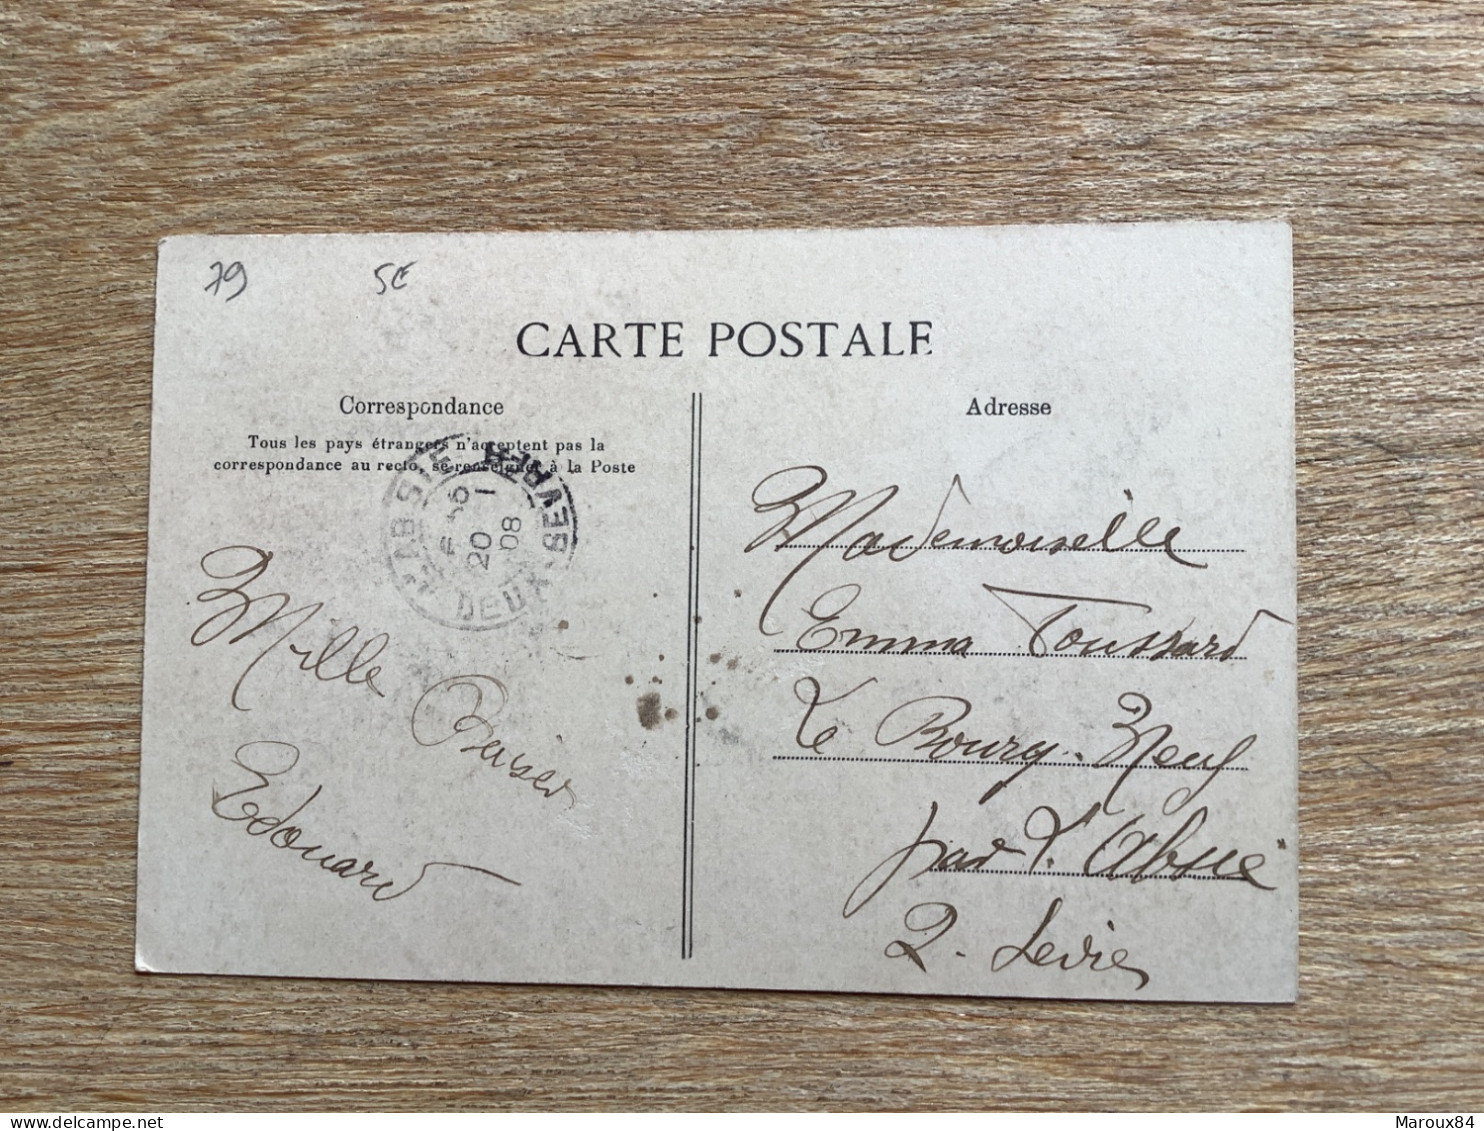 79 5€
CARTE POSTALE
Correspondance
Tous les pays étrangers n'acceptent pas la
correspondance au recto, se renseigner à la Poste
L'ABSIE
20 1
08
DEUX-SÈVRES
Mille Baisers
Edouard
Adresse
Mademoiselle
Emma Toussard
Le Bourg-Neuf
par L'Absie
2. Sevres
Maroux84